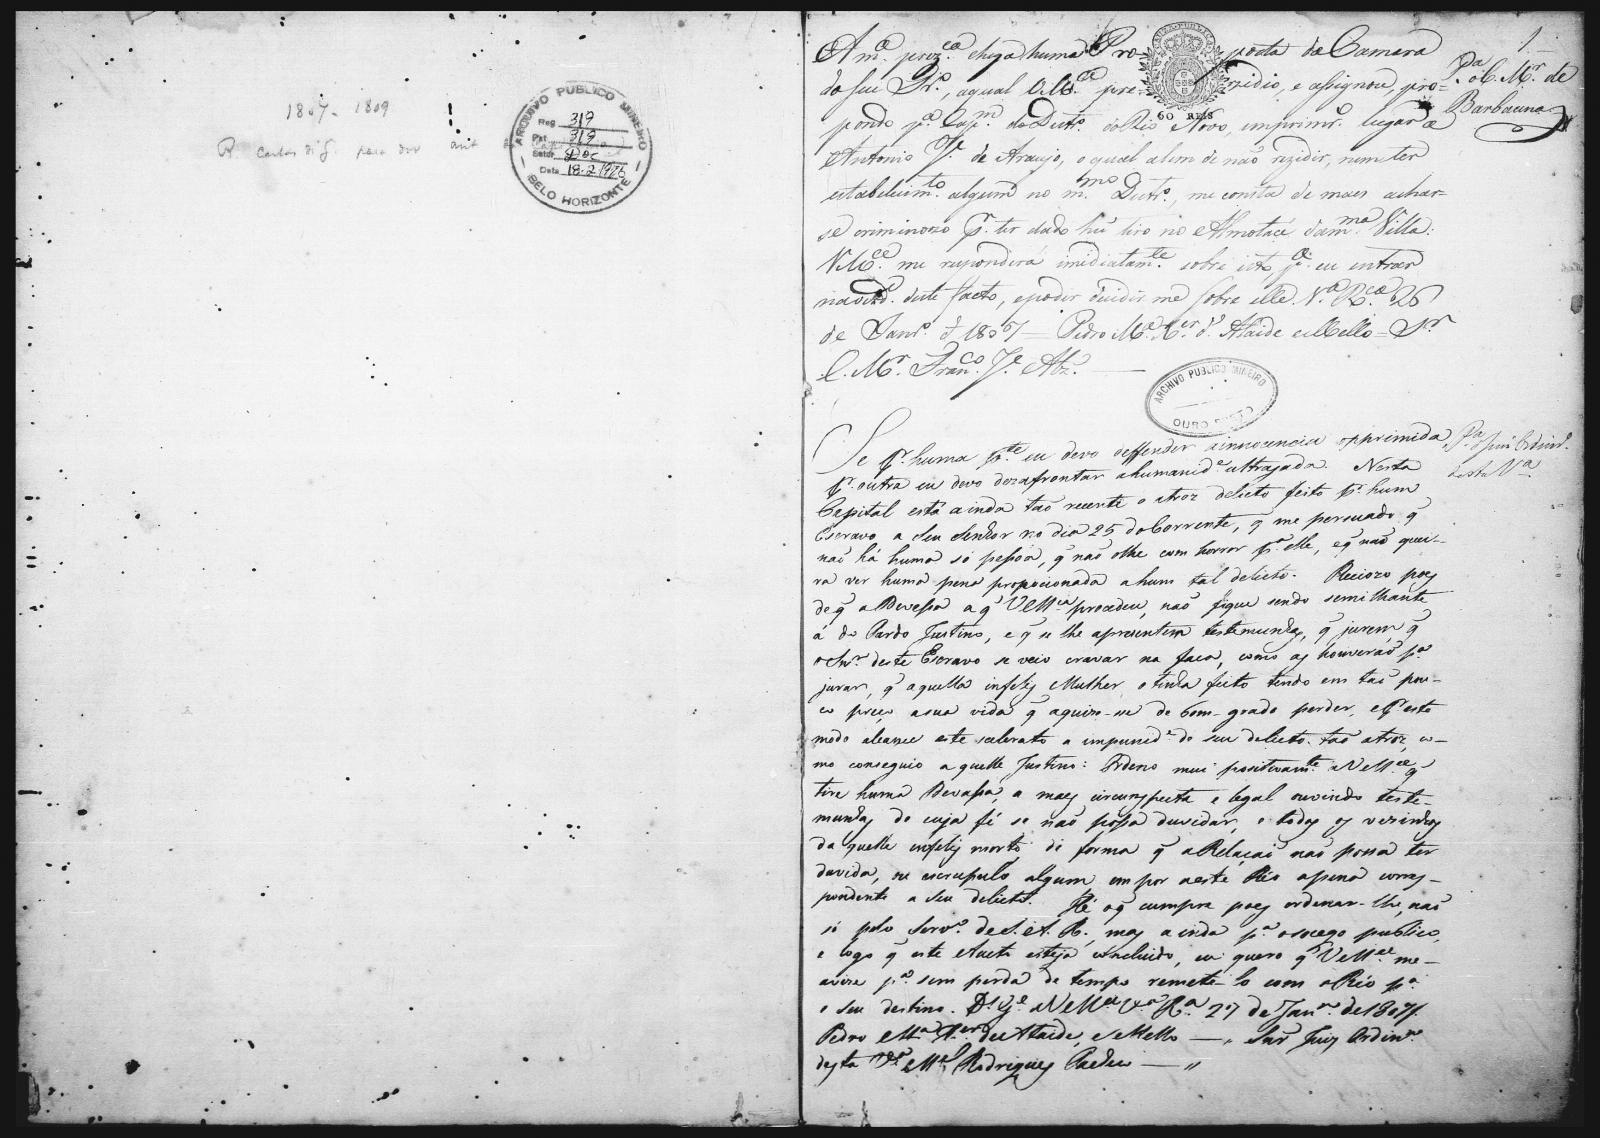 1807 - 1809
R. Cartas di G. para div
ARQUIVO PUBLICO MINEIRO
Reg 319
Pat 319
Setor Doc
Data 18.2.1926
BELO HORIZONTE
1
A m.ª prez.ça chega huma Pro- posta da Camara
do seu Dr.º, aqual VM.ce pre- zidio, e assignou, pro=
60 REIS
pondo p.ª Cap.m do Destr.º do Rio Novo, em prim.º lugar a
P.ª o C. M.r de
Barbacena
Antonio J.e de Araujo, o qual alem de não rezidir, nem ter
estabelecim.to algum no m.mo Destr.º, me consta de mais achar-
se criminozo p.r ter dado hũ tiro no Almotacé da m.ma Villa:
VM.ce me responderá imidiatam.te sobre isto p.ª eu entrar
deste facto, epoder decidir me sobre elle. V.ª R.ca 26
de Janr.º d' 1807 — Pedro M.ª X.er d' Ataide e Mello = S.r
C. M.r Fran.co J.e Alz.
ARCHIVO PUBLICO MINEIRO
OURO PRETO
Se p.r huma p.te eu devo deffender a innocencia opprimida,
p.r outra eu devo dezafrontar a humanid.e ultrajada. Nesta
P.ª o Juiz Ordinr.º
desta V.ª
Capital está ainda tão recente o atroz delicto feito p.r hum
Escravo a seu Senhor no dia 25 do Corrente, q̃ me persuado q̃
não há huma só pessoa, q̃ não olhe com horror p.ª elle, e q̃ não quei-
ra ver huma pena propocionada a hum tal delicto. Reciozo poes
de q̃ a Devassa a q̃ VM.ce procedeu, não fique sendo semilhante
á do Pardo Justino, e q̃ se lhe aprezentem testemunhas, q̃ jurem q̃
o Snr.' deste Escravo se veio cravar na faca, como as houverão p.ª
jurar, q̃ aquella infeliz Mulher o tinha feito tendo em tão pou-
co preço a sua vida q̃ a quiz-se de bom-grado perder, e p.r este
modo alcance este scelerato a impunid.e do seu delicto tão atroz, co-
mo conseguio aquelle Justino: Ordeno mui positivam.te a VM.ce q̃
tire huma Devassa, a mais circunspecta e legal ouvindo teste-
munhas de cuja fé se não possa duvidar, e todos os vezinhos
daquelle infeliz morto de forma q̃ a Relação não possa ter
duvida, ou escrupulo algum em por neste Réo a pena corres-
pondente a seu delicto. Hé o q̃ cumpre poes ordenar-lhe, não
só pelo Serv.º de S. A. R., mas ainda p.ª o socego publico,
e logo q̃ este Aucto esteja concluido, eu quero q̃ VM.ce me-
avize p.ª sem perda de tempo remetê-lo com o Réo p.ª
o seu destino. D.s G.e a VM.ce V.ª R.ca 27 de Jan.ro de 1807.
Pedro M.ª X.er de Ataide, e Mello — " Snr' Juiz Ordin.º
desta V.ª M.el Rodrigues — "